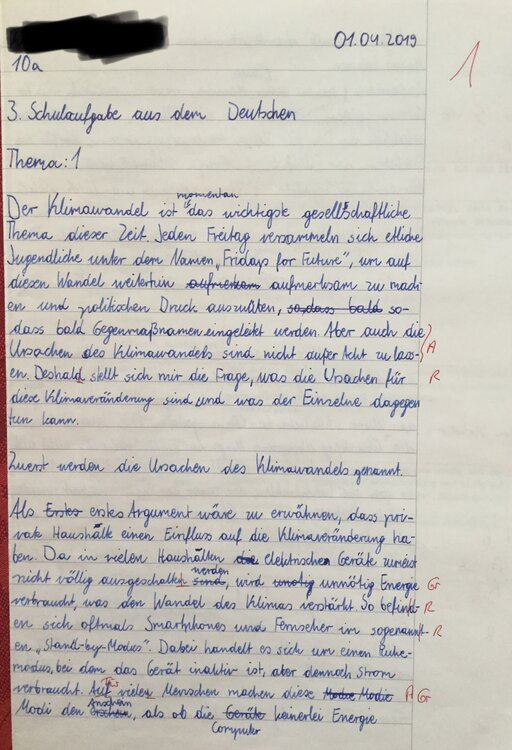 01.04.2019
10a
1
3. Schulaufgabe aus dem Deutschen
Thema: 1
momentan
Der Klimawandel ist das wichtigste gesellschaftliche
Thema dieser Zeit. Jeden Freitag versammeln sich etliche
Jugendliche unter dem Namen „Fridays for Future", um auf
diesen Wandel weiterhin aufmerksam zu mach-
en und politischen Druck auszuüben, sodass bald so-
dass bald Gegenmaßnamen eingeleitet werden. Aber auch die
Ursachen des Klimawandels sind nicht außer Acht zu lass- A
en. Deshald stellt sich mir die Frage, was die Usachen für R
diese Klimaveränderung sind und was der Einzelne dagegen
tun kann.
Zuerst werden die Ursachen des Klimawandels genannt.
Als Erstes erstes Argument wäre zu erwähnen, dass pri-
vate Haushälte einen Einfluss auf die Klimaveränderung ha-
ben. Da in vielen Haushälten die elektrischen Geräte zumeist
werden
nicht völlig ausgeschalten sind, wird unnötig unnötig Energie Gr
verbraucht, was den Wandel des Klimas verstärkt. So befind- R
en sich oftmals Smartphones und Fernseher im sogenannt- R
en „Stand-by-Modus". Dabei handelt es sich um einen Ruhe-
modus, bei dem das Gerät inaktiv ist, aber dennoch Strom
verbraucht. Auf vielen Menschen machen diese Modie Modie A Gr
Anschein
Modi den, als ob die Geräte keinerlei Energie
Computer